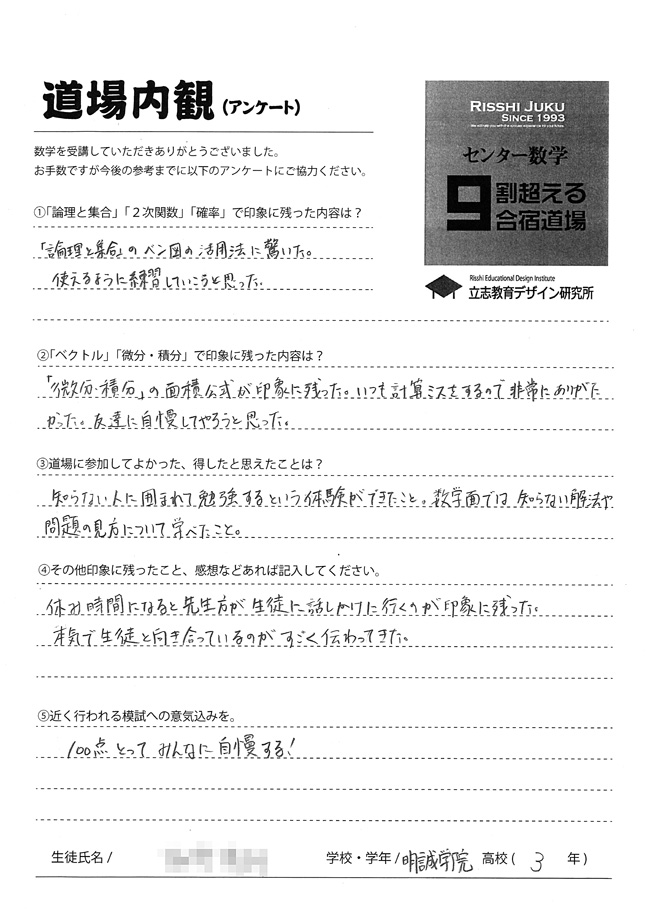 道場内観(アンケート)
数学を受講していただきありがとうございました。
お手数ですが今後の参考までに以下のアンケートにご協力ください。
RISSHI JUKU
SINCE 1993
センター数学
9割超える
合宿道場
Risshi Educational Design Institute
立志教育デザイン研究所
①「論理と集合」「２次関数」「確率」で印象に残った内容は？
「論理と集合」のベン図の活用法に驚いた。
使えるように練習していこうと思った。
②「ベクトル」「微分・積分」で印象に残った内容は？
「微分・積分」の面積公式が印象に残った。いつも計算ミスをするので非常にありがた
かった。友達に自慢してやろうと思った。
③道場に参加してよかった、得したと思えたことは？
知らない人に囲まれて勉強するという体験ができたこと。数学面では知らない解法や
問題の見方について学べたこと。
④その他印象に残ったこと、感想などあれば記入してください。
休み時間になると先生方が生徒に話しかけに行くのが印象に残った。
本気で生徒と向き合っているのがすごく伝わってきた。
⑤近く行われる模試への意気込みを。
100点とってみんなに自慢する！
生徒氏名 / 学校・学年 / 明誠学院 高校( 3 年 )